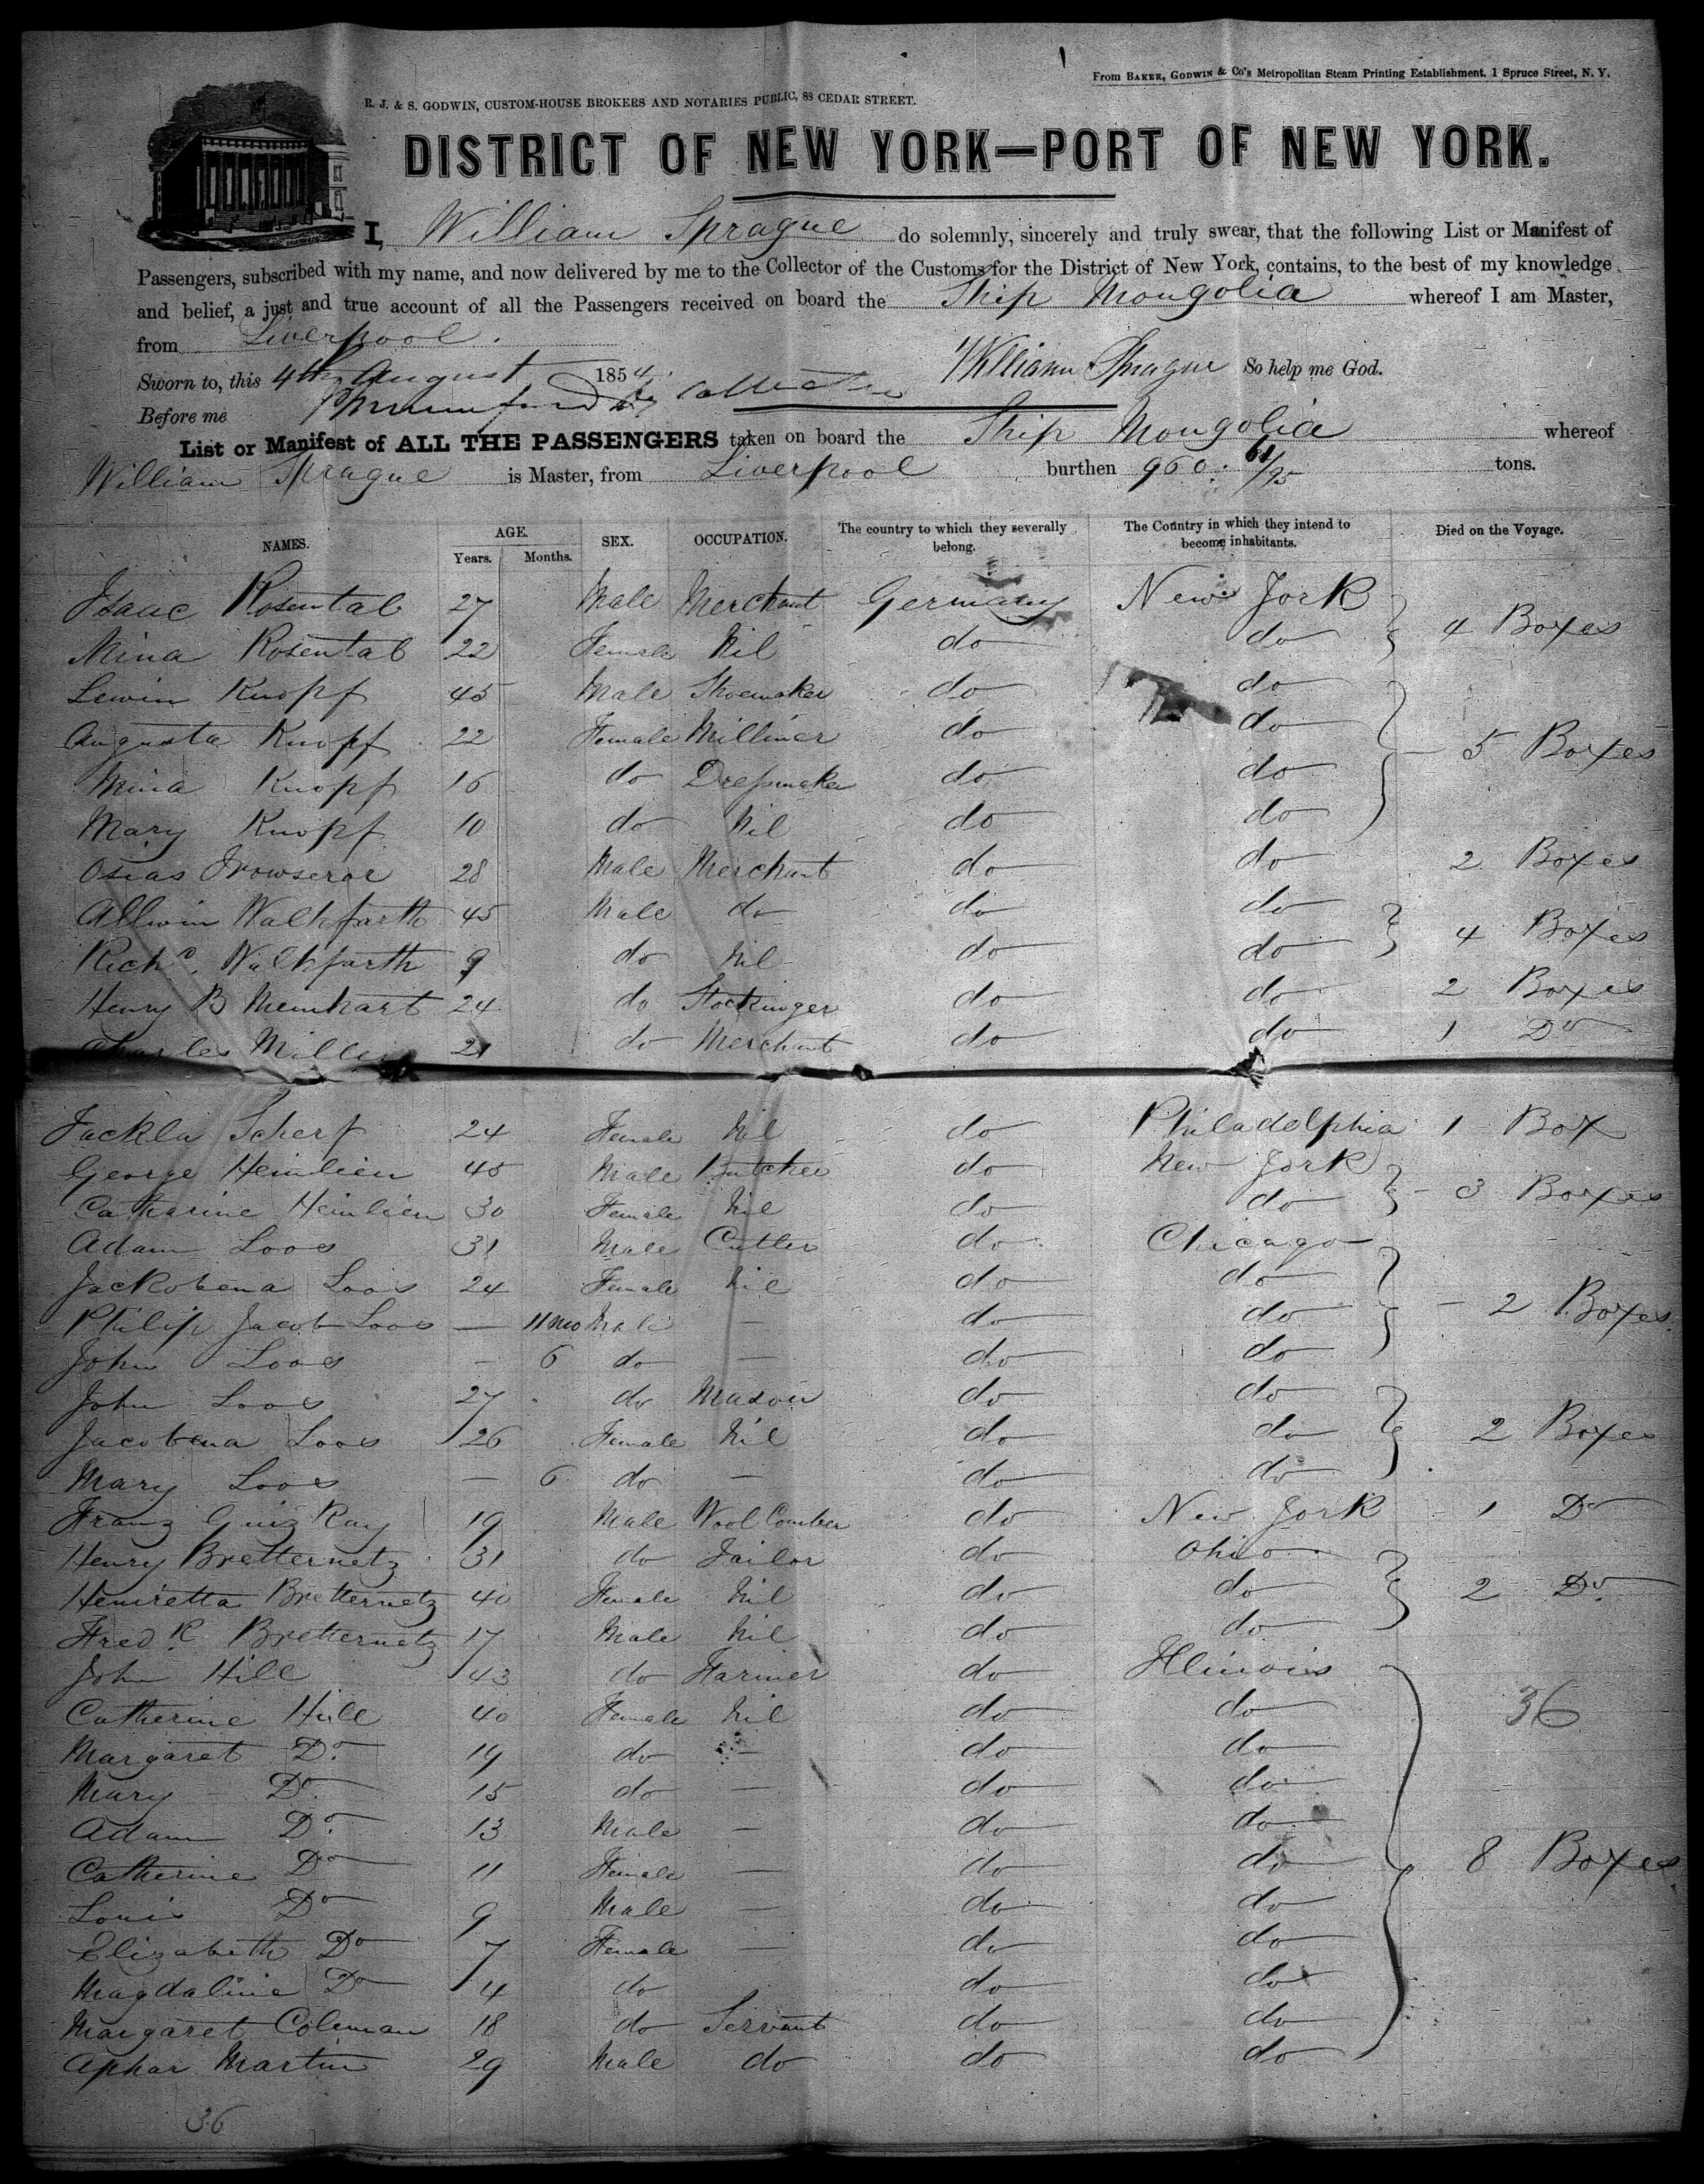 From BAKER, GODWIN & Co's Metropolitan Steam Printing Establishment, 1 Spruce Street, N. Y.
R. J. & S. GODWIN, CUSTOM-HOUSE BROKERS AND NOTARIES PUBLIC, 88 CEDAR STREET.
DISTRICT OF NEW YORK—PORT OF NEW YORK.
I, William Sprague do solemnly, sincerely and truly swear, that the following List or Manifest of
Passengers, subscribed with my name, and now delivered by me to the Collector of the Customs for the District of New York, contains, to the best of my knowledge
and belief, a just and true account of all the Passengers received on board the Ship Mongolia whereof I am Master,
from Liverpool.
Sworn to, this 4th August 1854 William Sprague So help me God.
Before me
List or Manifest of ALL THE PASSENGERS taken on board the Ship Mongolia whereof
William Sprague is Master, from Liverpool burthen 960. 61/95 tons.
NAMES. AGE. Years. Months. SEX. OCCUPATION. The country to which they severally belong. The Country in which they intend to become inhabitants. Died on the Voyage.
Isaac Rosental 27 Male Merchant Germany New York
Mina Rosental 22 Female Nil do do 4 Boxes
Lewin Knopf 45 Male Shoemaker do do
Augusta Knopf 22 Female Milliner do do
Mina Knopf 16 do Dressmaker do do 5 Boxes
Mary Knopf 10 do Nil do do
Osias 28 Male Merchant do do 2 Boxes
Allwin Walkfarth 45 Male do do do
Richd. Walkfarth 9 do Nil do do 4 Boxes
Henry B Meinhart 24 do Stockinger do do 2 Boxes
Charles Miller 21 do Merchant do do 1 Do
Scherf 24 Female Nil do Philadelphia 1 Box
George Heinlien 45 Male Butcher do New York
Catharine Heinlien 30 Female Nil do do 3 Boxes
Adam Loos 31 Male Cutler do Chicago
Jackobena Loos 24 Female Nil do do
Philip Jacob Loos — 11 mo Male — do do 2 Boxes
John Loos — 6 do — do do
John Loos 27 do Mason do do
Jacobena Loos 26 Female Nil do do 2 Boxes
Mary Loos — 6 do — do do
Franz Ray 19 Male Wool Comber do New York 1 Do
Henry Bretternetz 31 do Tailor do Ohio
Henrietta Bretternetz 40 Female Nil do do 2 Do.
Fredk. Bretternetz 17 Male Nil do do
John Hill 43 do Farmer do Illinois
Catherine Hill 40 Female Nil do do 36
Margaret Do. 19 do — do do
Mary Do. 15 do — do do
Adam Do. 13 Male — do do
Catherine Do 11 Female — do do 8 Boxes
Louis Do 9 Male — do do
Elizabeth Do 7 Female — do do
Magdaline Do 4 do do do
Margaret Coleman 18 do Servant do do
Martin 29 Male do do do
36